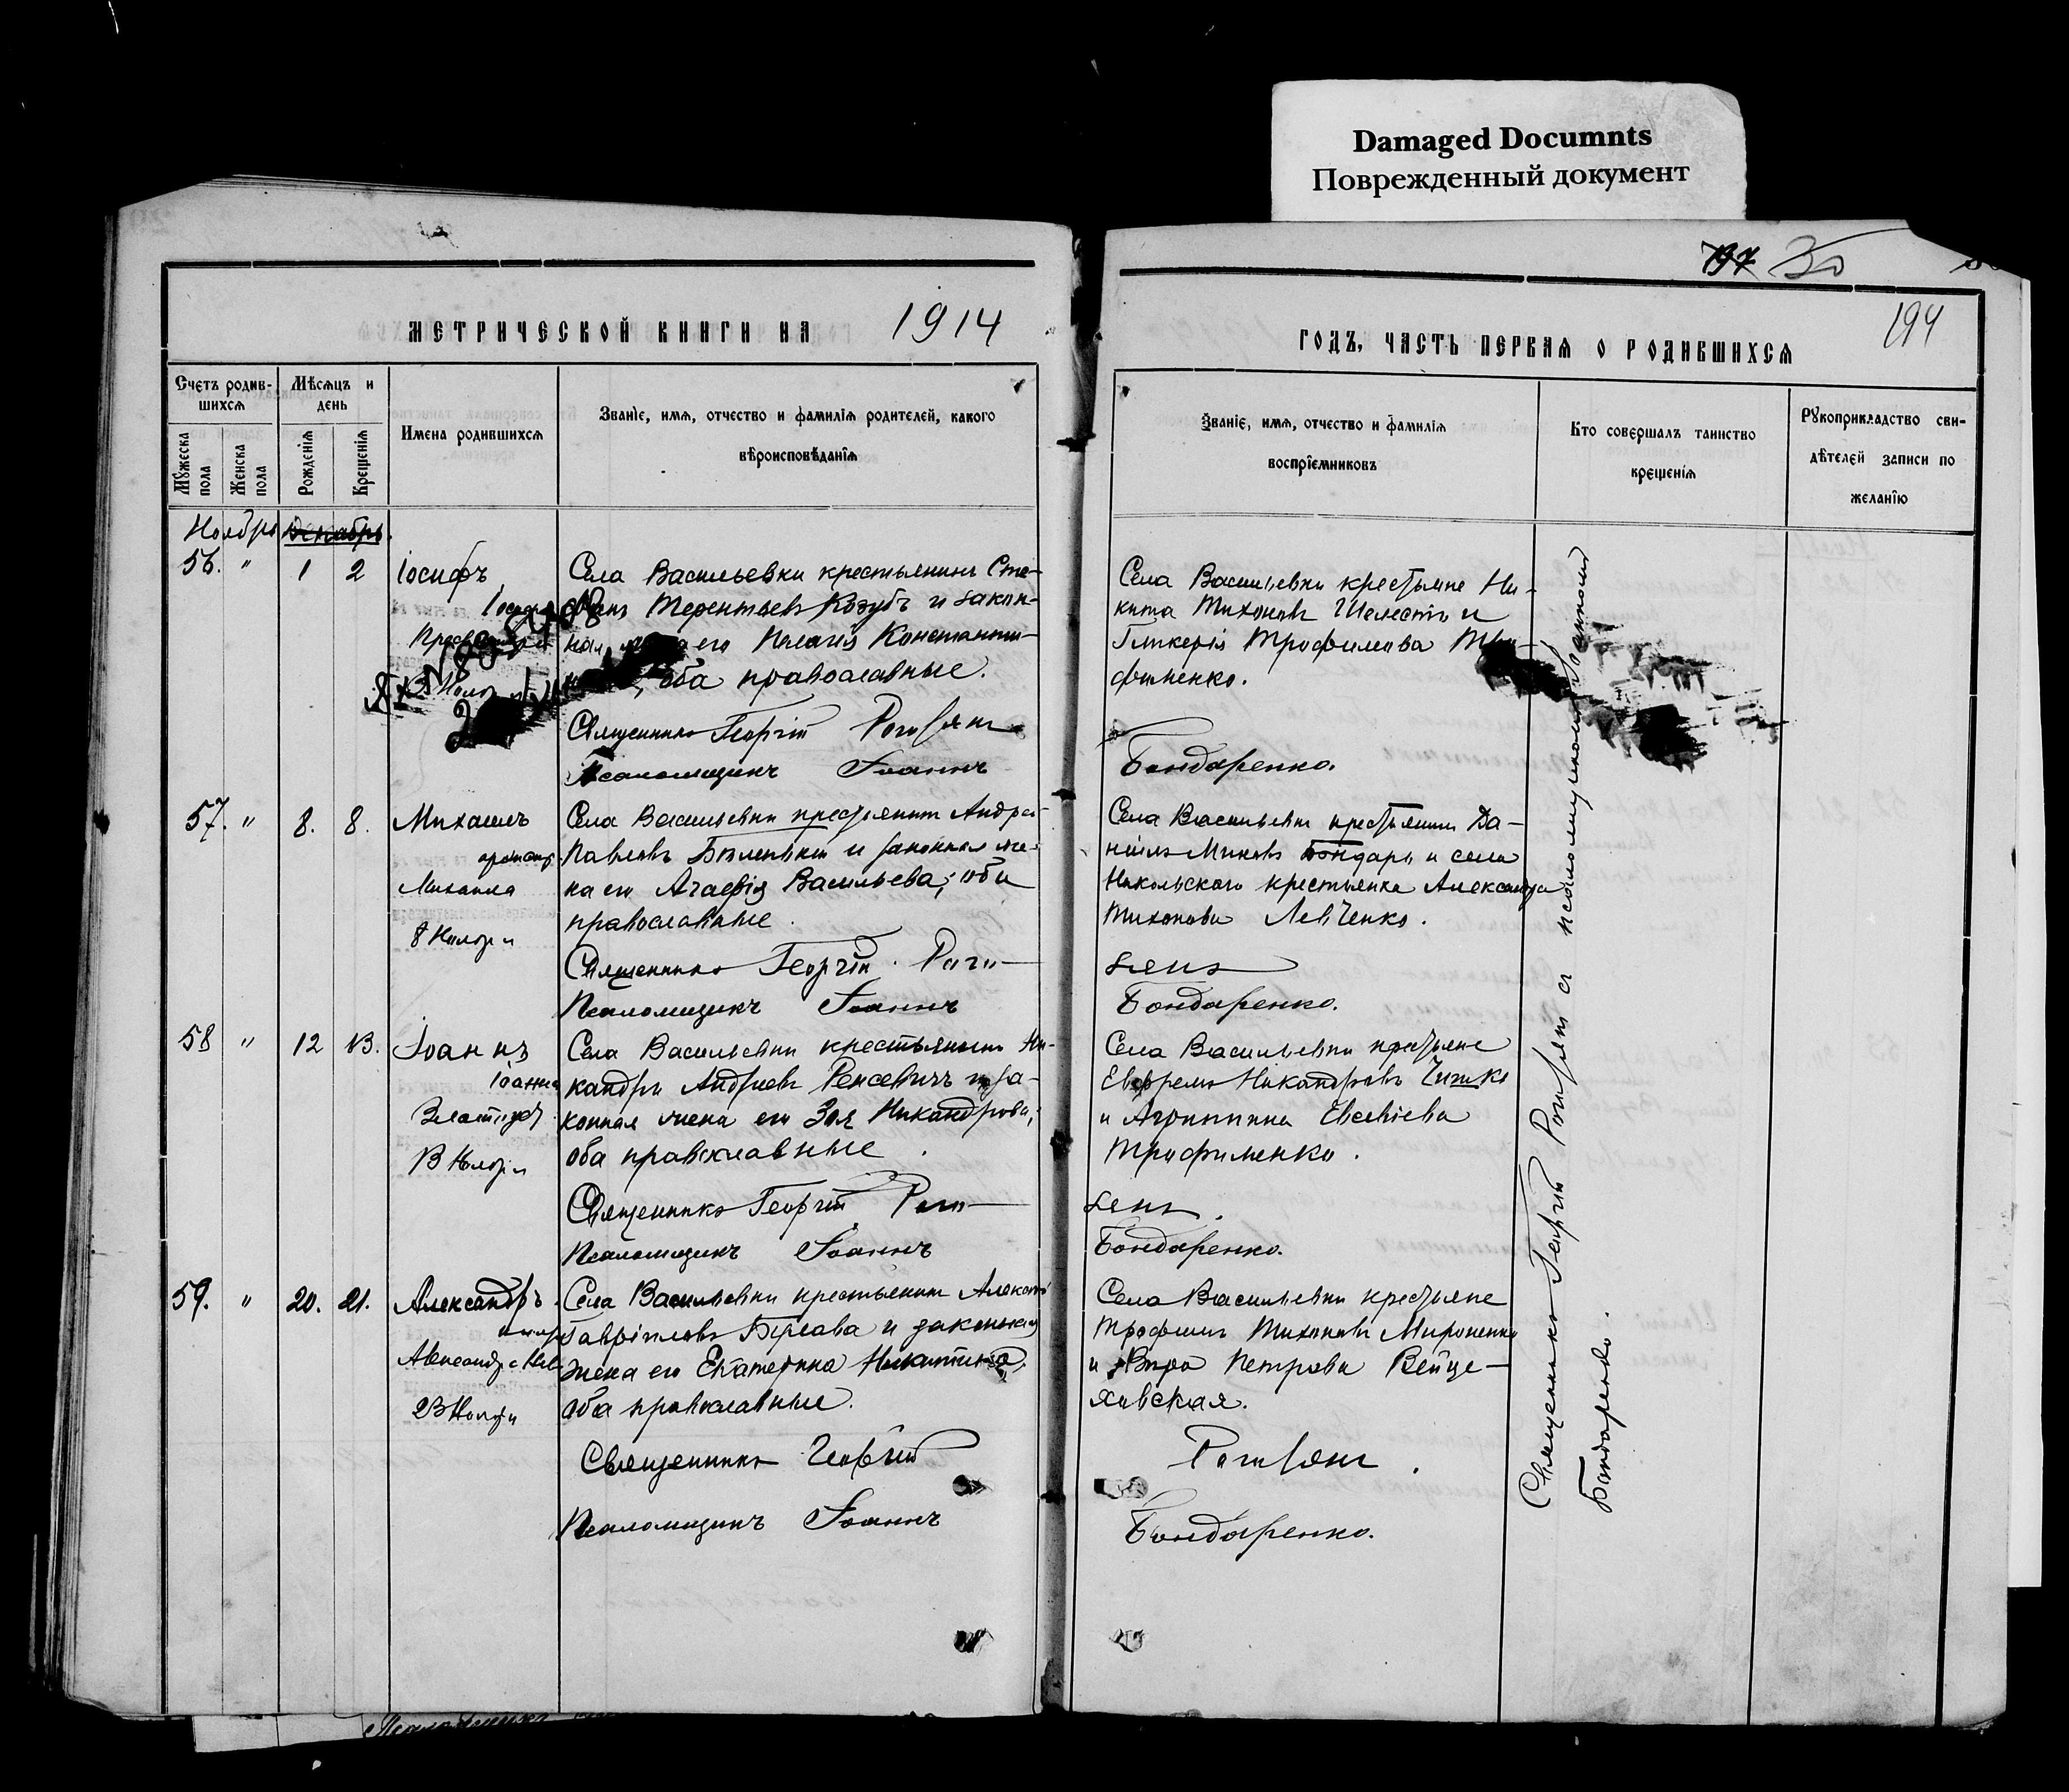 Damaged Documnts
Поврежденный документ
МЕТРИЧЕСКОЙ КНИГИ НА 1914
Счетъ родив-
шихся
Мѣсяцъ и
день
Мужеска
пола
Женска
пола
Рожденія
Крещенія
Имена родившихся
Званіе, имя, отчество и фамилія родителей, какого
вѣроисповѣданія
Ноябрь Декабрь.
56. " 1 2 Іосифъ
Села Васильевки крестьянинъ Сте-
Терентьевъ Козубъ и закон-
ная его Пелагія Константи-
оба православные.
Священникъ Георгій
Псаломщикъ Іоаннъ
57. " 8. 8. Михаилъ
Михаила
8 Ноября
Села Васильевки крестьянинъ Андрей
Павловъ и законная же-
на его Васильева; оба
православные.
Священникъ Георгій
Псаломщикъ Іоаннъ
58 " 12 13. Іоаннъ
Іоанна
Златоуст
13 Ноября
Села Васильевки крестьянинъ Ни-
кандръ Андреевъ и за-
конная жена его Зоя Никандрова;
оба православные.
Священникъ Георгій
Псаломщикъ Іоаннъ
59. " 20. 21. Александръ
23 Ноября
Села Васильевки крестьянинъ
Гавріиловъ и законная
жена его Екатерина Никитина
оба православные.
Священникъ Георгій
Псаломщикъ Іоаннъ
197 35
194
ГОДЪ, ЧАСТЬ ПЕРВАЯ О РОДИВШИХСЯ
Званіе, имя, отчество и фамилія
воспріемниковъ
Кто совершалъ таинство
крещенія
Рукоприкладство сви-
дѣтелей записи по
желанію
Села Васильевки крестьяне Ни-
кита Тихоновъ Шелестъ и
Гликерія Трофимова Тро-
фименко.
Бондаренко.
Села Васильевки крестьянинъ Да-
ніилъ Бондарь и села
Никольскаго крестьянка Александра
Тихонова Левченко.
Бондаренко.
Села Васильевки крестьяне
Ефремъ Никандровъ Чижко
и Агриппина Евсевіева
Трофименко.
Бондаренко.
Села Васильевки крестьяне
Трофимъ Тихоновъ Мироненко
и Вѣра Петрова Вейце-
ховская.
Бондаренко.
Священникъ Георгій съ псаломщикомъ Іоанномъ
Бондаренко.